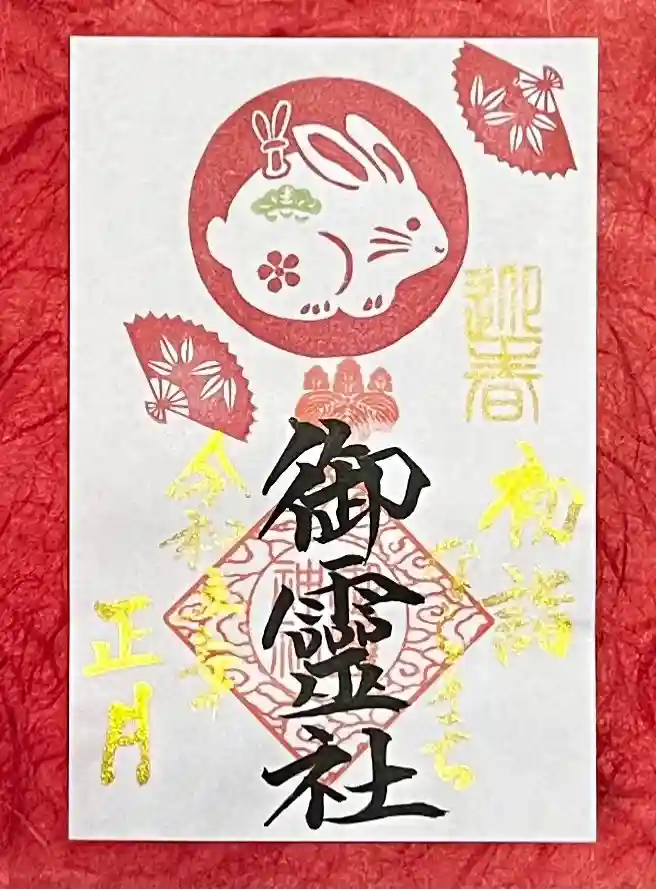 迎春
初詣
御靈社
令和五年
正月